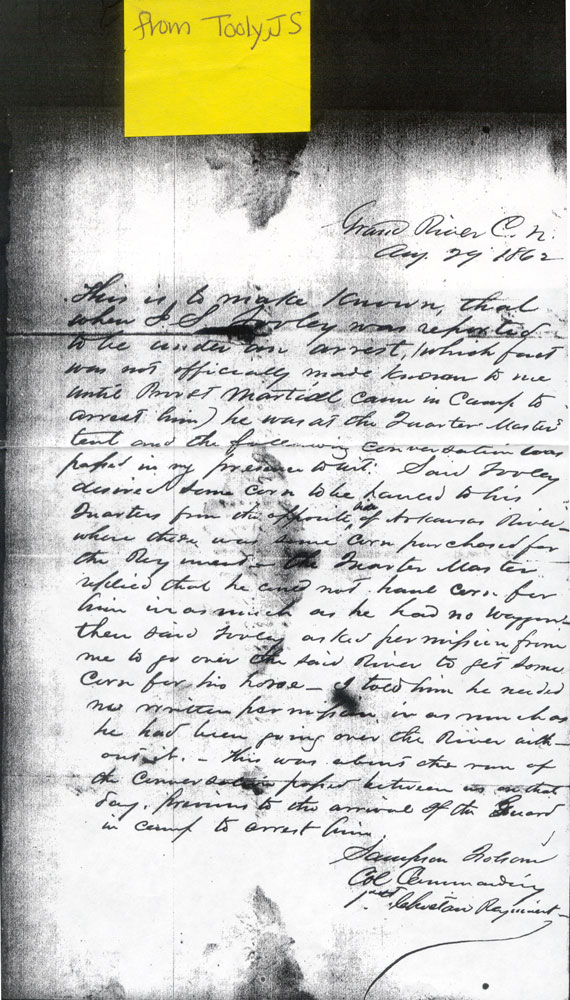 from Tooly, JS
Grand River C. N.
Aug. 29 1862
This is to make Known, that
when J S Tooley was reported
to be under an arrest, (which fact
was not officially made Known to me
until Provst Martiall came in Camp to
arrest him) he was at the Quarter Master
tent and the following conversation was
passed in my presence towit: Said Tooley
desired some corn to be hauled to his
Quarters from the opposite side of Arkansas River
where there was some corn purchased for
the Regiment - the Quarter Master
replied that he could not haul corn for
him in as much as he had no waggon
then said Tooley asked permission from
me to go over the said River to get some
Corn for his horse - I told him he needed
no written permission in as much as
he had been going over the River with-
out it. - This was about the run of
the conversation passed between us on that
day. Previous to the arrival of the Guard
in camp to arrest him.
Sampson Folsom
Col Commanding
1st Choctaw Regiment